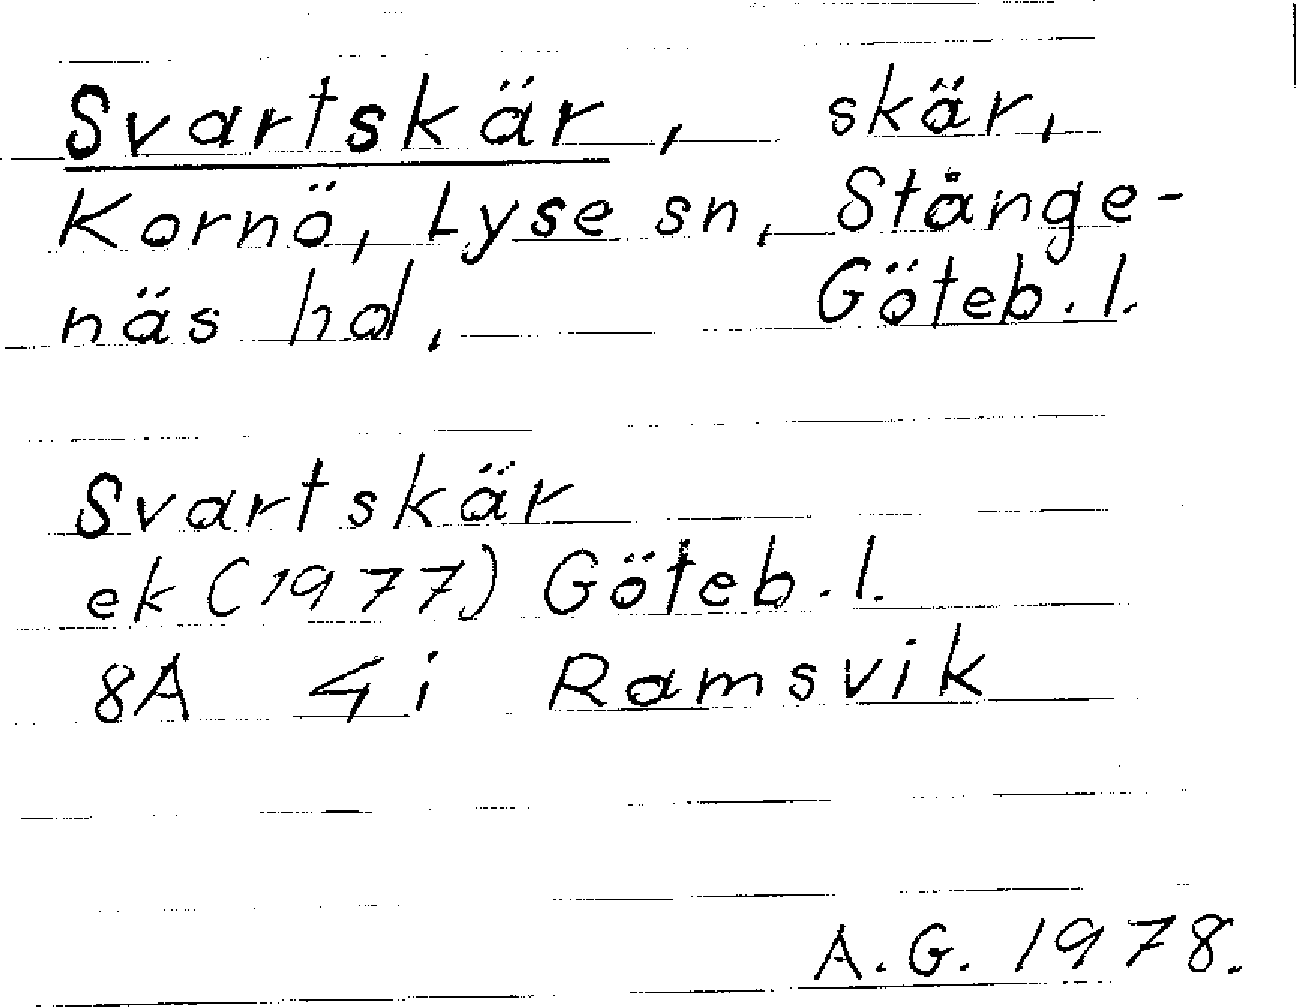 Svartskär, skär,
Kornö, Lyse sn, Stånge-
näs hd, Göteb. l.
Svartskär
ek (1977) Göteb. l.
8A 4i Ramsvik
A.G. 1978.